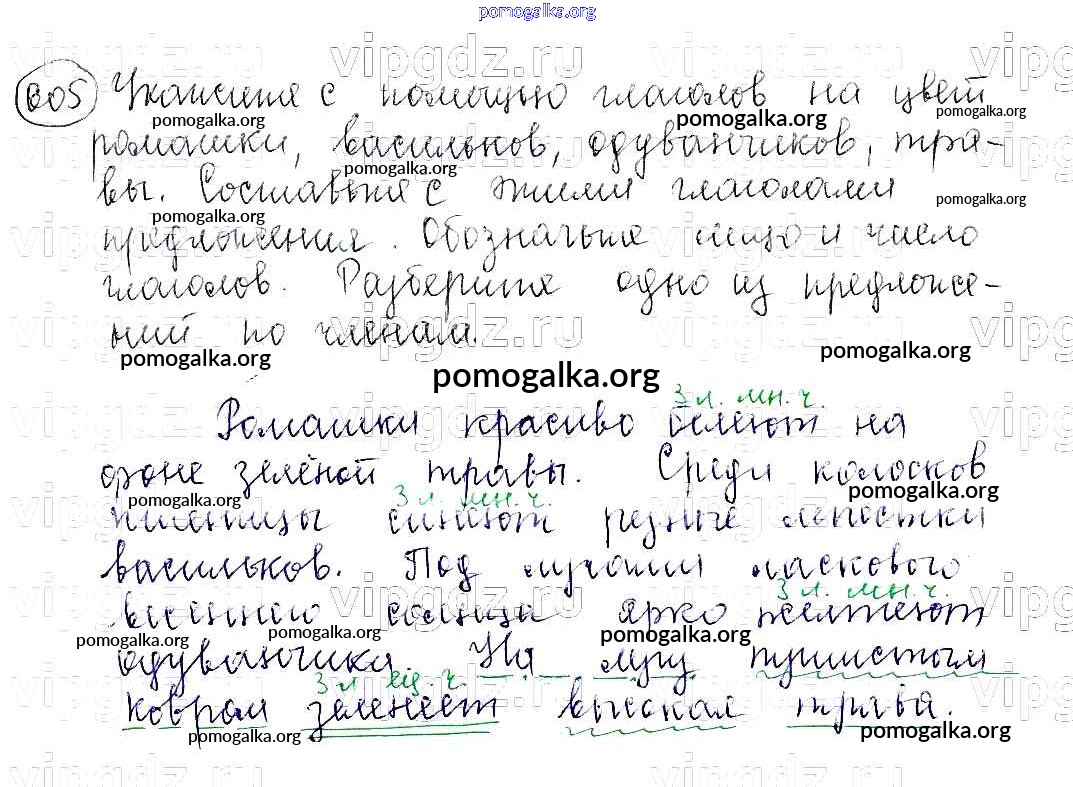 pomogalka.org
605 Укажите с помощью глаголов на цвет
ромашки, васильков, одуванчиков, тра-
вы. Составьте с этими глаголами
предложения. Обозначьте лицо и число
глаголов. Разберите одно из предложе-
ний по членам.
pomogalka.org
3 л. мн. ч.
Ромашки красиво белеют на
фоне зелёной травы. Среди колосков
3 л. мн. ч.
пшеницы синеют резные лепестки
васильков. Под лучами ласкового
3 л. мн. ч.
весеннего солнца ярко желтеют
одуванчики. На лугу пушистым
3 л. ед. ч.
ковром зеленеет высокая трава.
pomogalka.org
vipgdz.ru